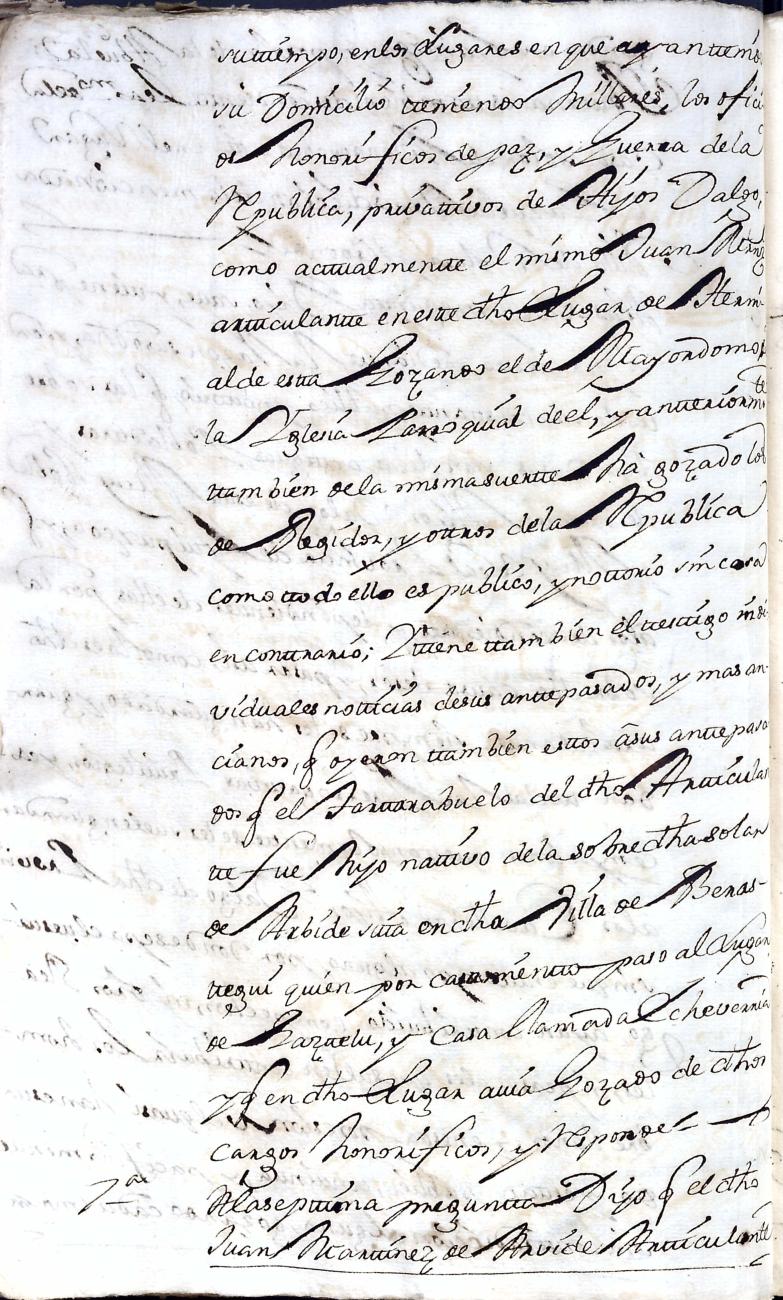 su ttiempo, en los Lugares en que ayan ttenido
su Domicilio ttenienes Millares, los ofici
os Honorificos de paz, y Guerra de la
Republica, privattivos de Hijos Dalgo,
como acttualmentte el mismo Juan Mrnz
artticulantte en estte dho Lugar de Herni-
alde estta Gozando el de Mayordomo de
la Yglesia Parroquial de el, y antteriormte
ttambien de la misma suertte ha gozado los
de Regidor, y ottros de la Republica
como ttodo ello es publico, y nottorio sin cosa
en conttrario; Ttiene ttambien el ttesttigo indi-
viduales notticias de sus anttepasados, y mas an-
cianos, q oyeron ttambien esttos â sus anttepasa
dos q el Tartarabuelo del dho Artticulan
tte fue hijo nattivo de la sobre dha solar
de Arbide sitta en dha Villa de Beras-
ttegui quien por casamientto paso al Lugar
de Gazttelu, y Casa llamada Echeverria
y q en dho Lugar avia Gozado de dhos
cargos honorificos, y Responde
7a A la septtima preguntta Dijo q el dho
Juan Marttinez de Arvide Artticulantte